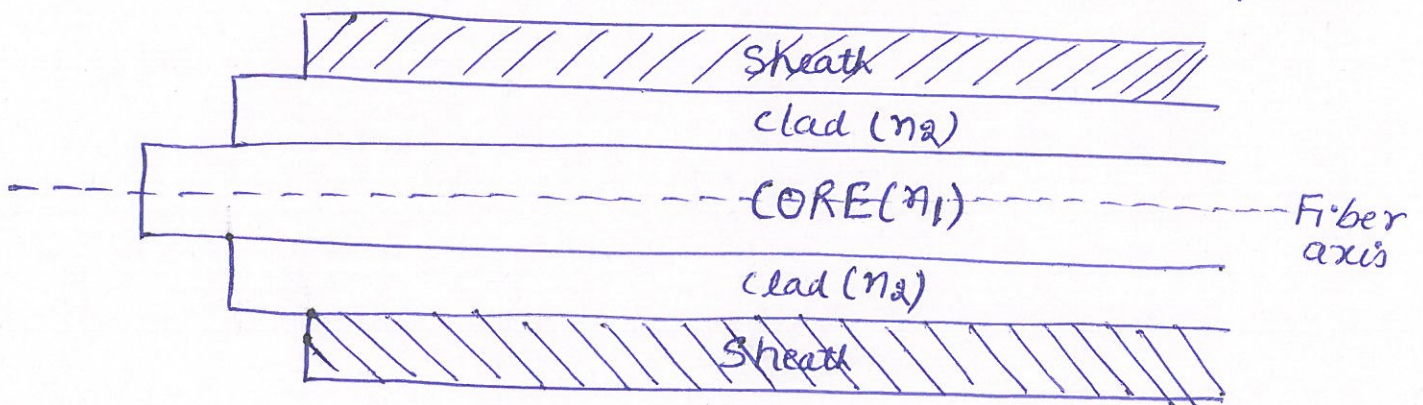 Sheath
clad (n2)
CORE (n1)
Fiber
axis
clad (n2)
Sheath